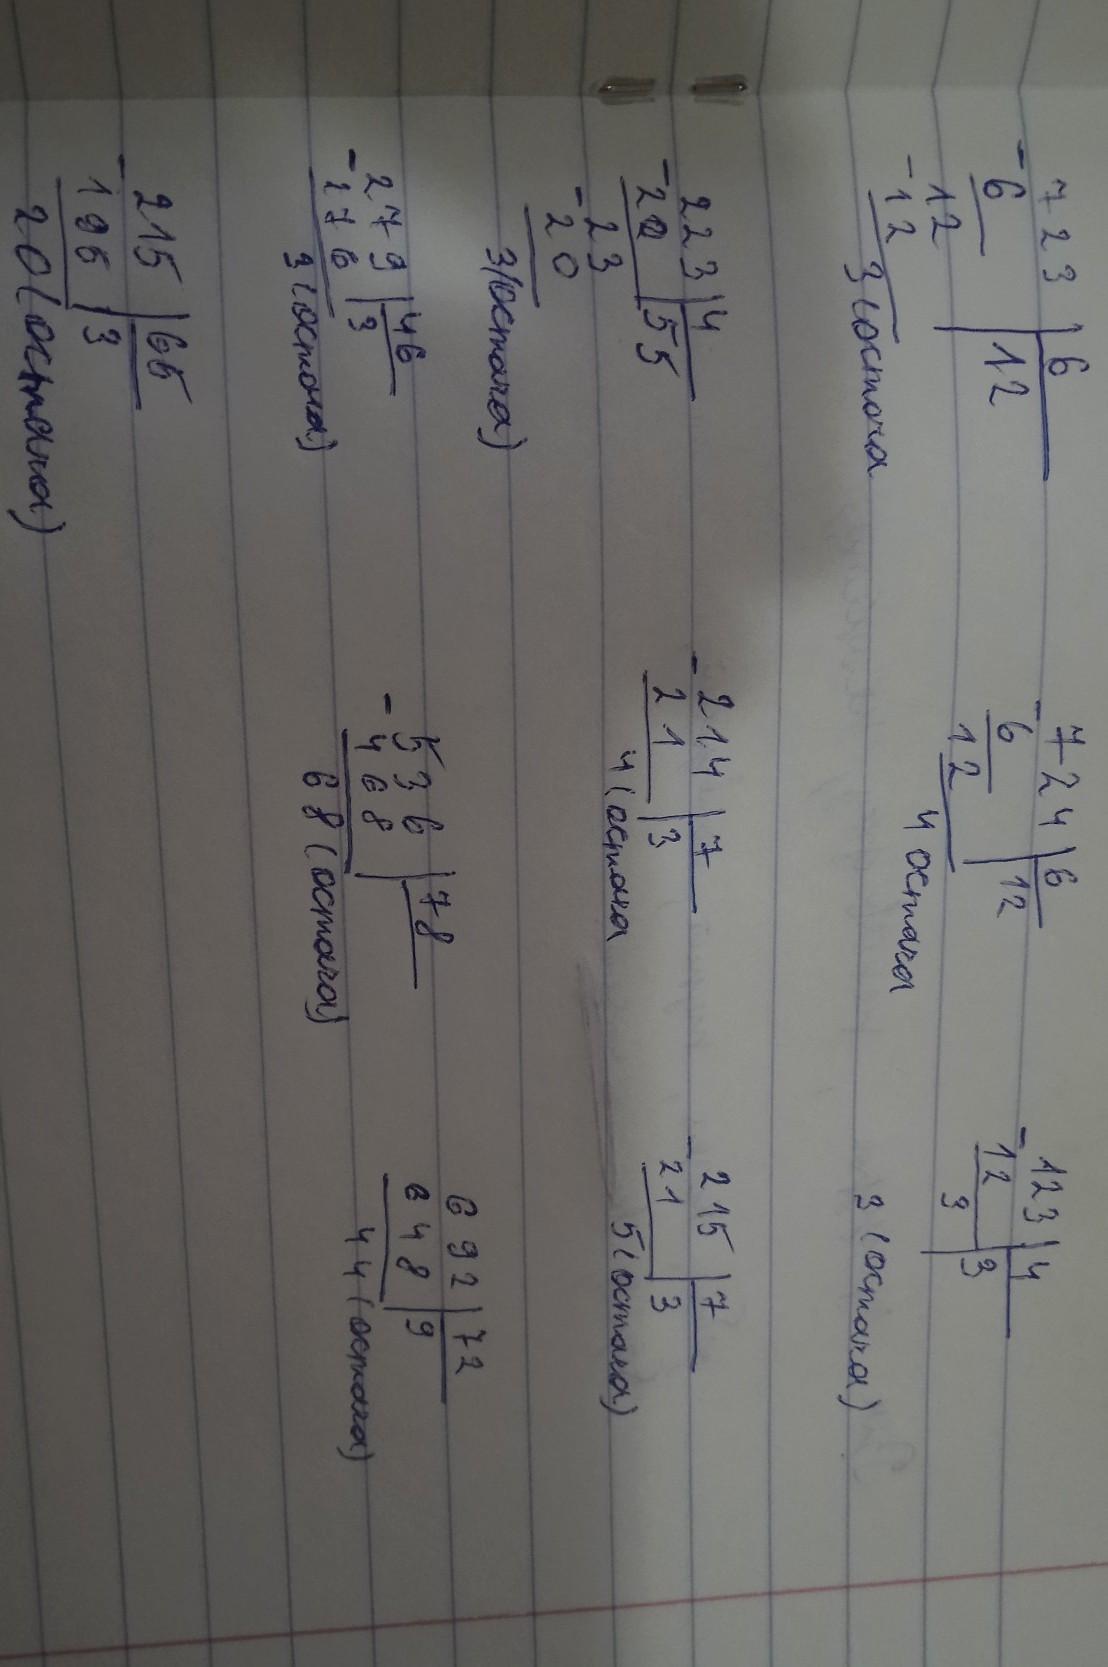 723 | 6
- 6 | 12
12
- 12
3 (остача
- 724 | 6
6 | 12
12
4 остача
- 123 | 4
12 | 3
3
3 (остача)
223 | 4
- 20 | 55
- 23
20
3 (остача)
- 214 | 7
21 | 3
4 (остача
- 215 | 7
21 | 3
5 (остача)
279 | 46
- 276 | 3
3 (остача)
- 536 | 78
468 |
68 (остача)
692 | 72
648 | 9
44 (остача)
- 215 | 65
195 | 3
20 (остача)